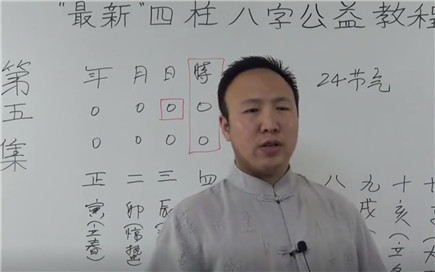 "最新"四柱八字公益教程
第五集
年 月 日 時
24节气
0 0 0 0
0 0 0 0
正 二 三 四 八 九 十 十
寅 卯 辰 戌 亥
(立春) (惊蛰)